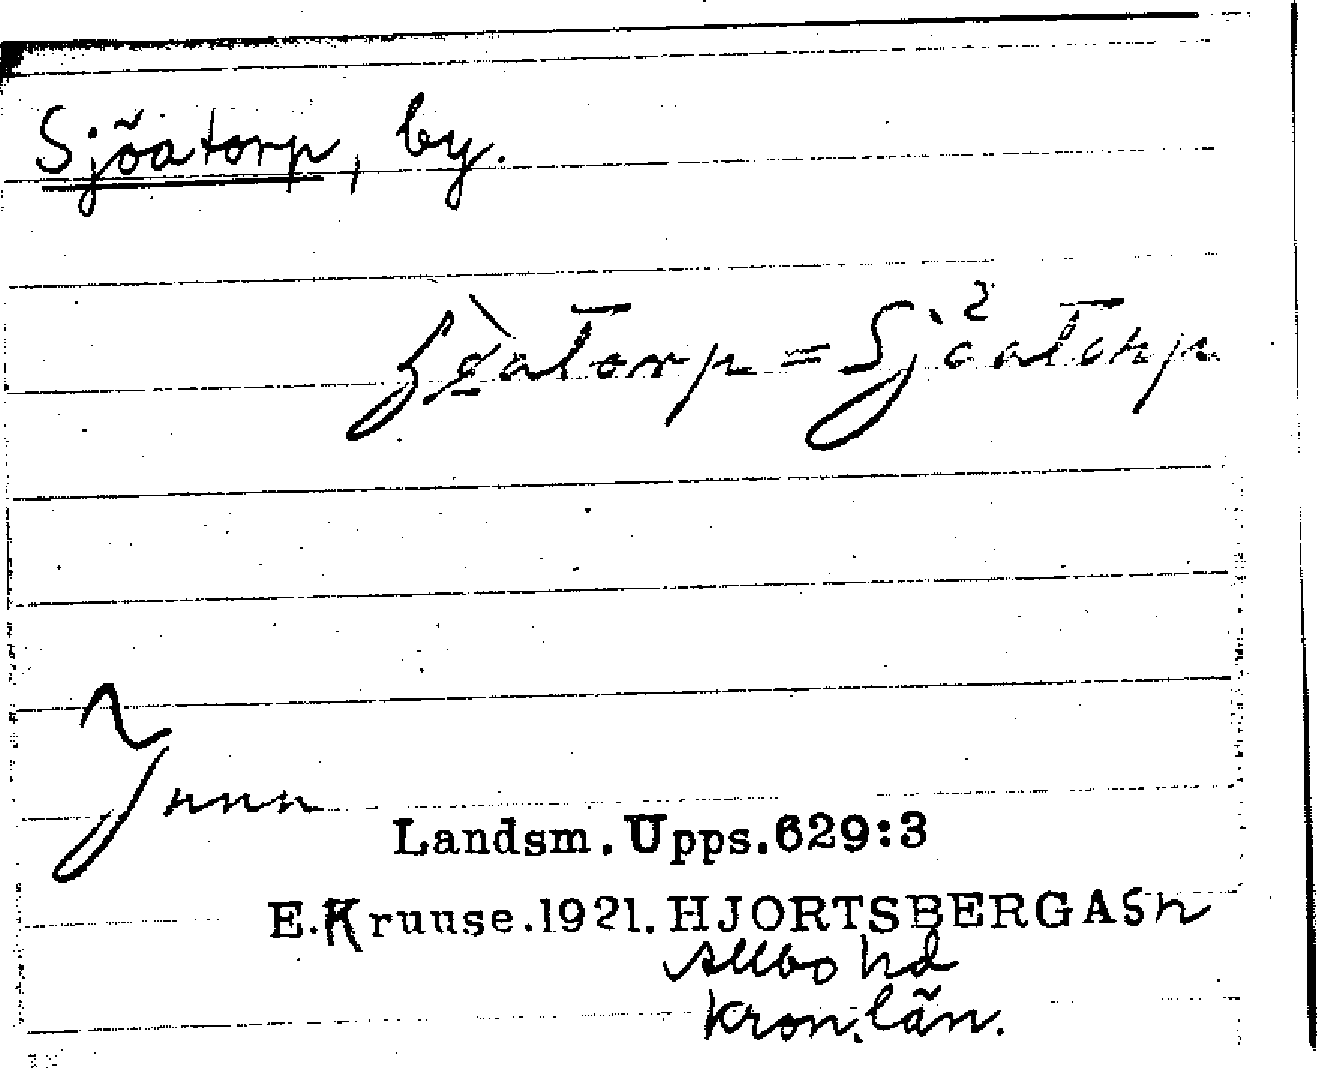 Sjöatorp, by.
= Sjöatorp
Landsm. Upps. 629:3
E. Kruuse. 1921. HJORTSBERGA Sn
Allbo hd
Kron. län.